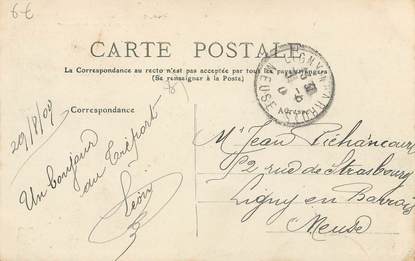 6€
CARTE POSTALE
La Correspondance au recto n'est pas acceptée par tous les pays étrangers
(Se renseigner à la Poste)
Correspondance
29/8/09
Un bonjour
au Tréport
Léon
LIGNY-EN-BARROIS
MEUSE
Mr Jean
52 rue de Strasbourg
Ligny en Barrois
Meuse